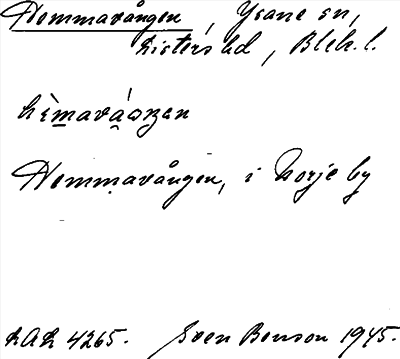 Hemmavången, Ysane sn,
Listers hd, Blek. l.
Hemmavången, i Norje by
LAL 4265. Sven Benson 1945.